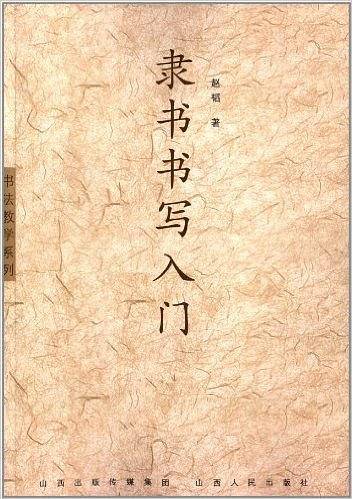 隶书书写入门
赵韬 著
书法教学系列
山西出版传媒集团 山西人民出版社